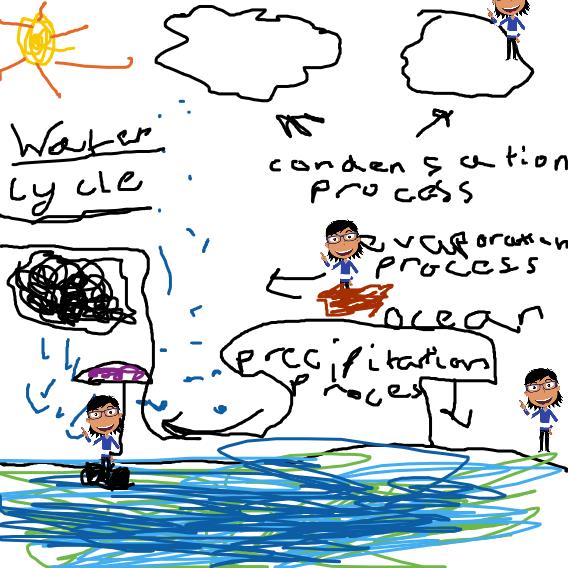 Water
cycle
condensation
process
evaporation
process
ocean
precipitation
process